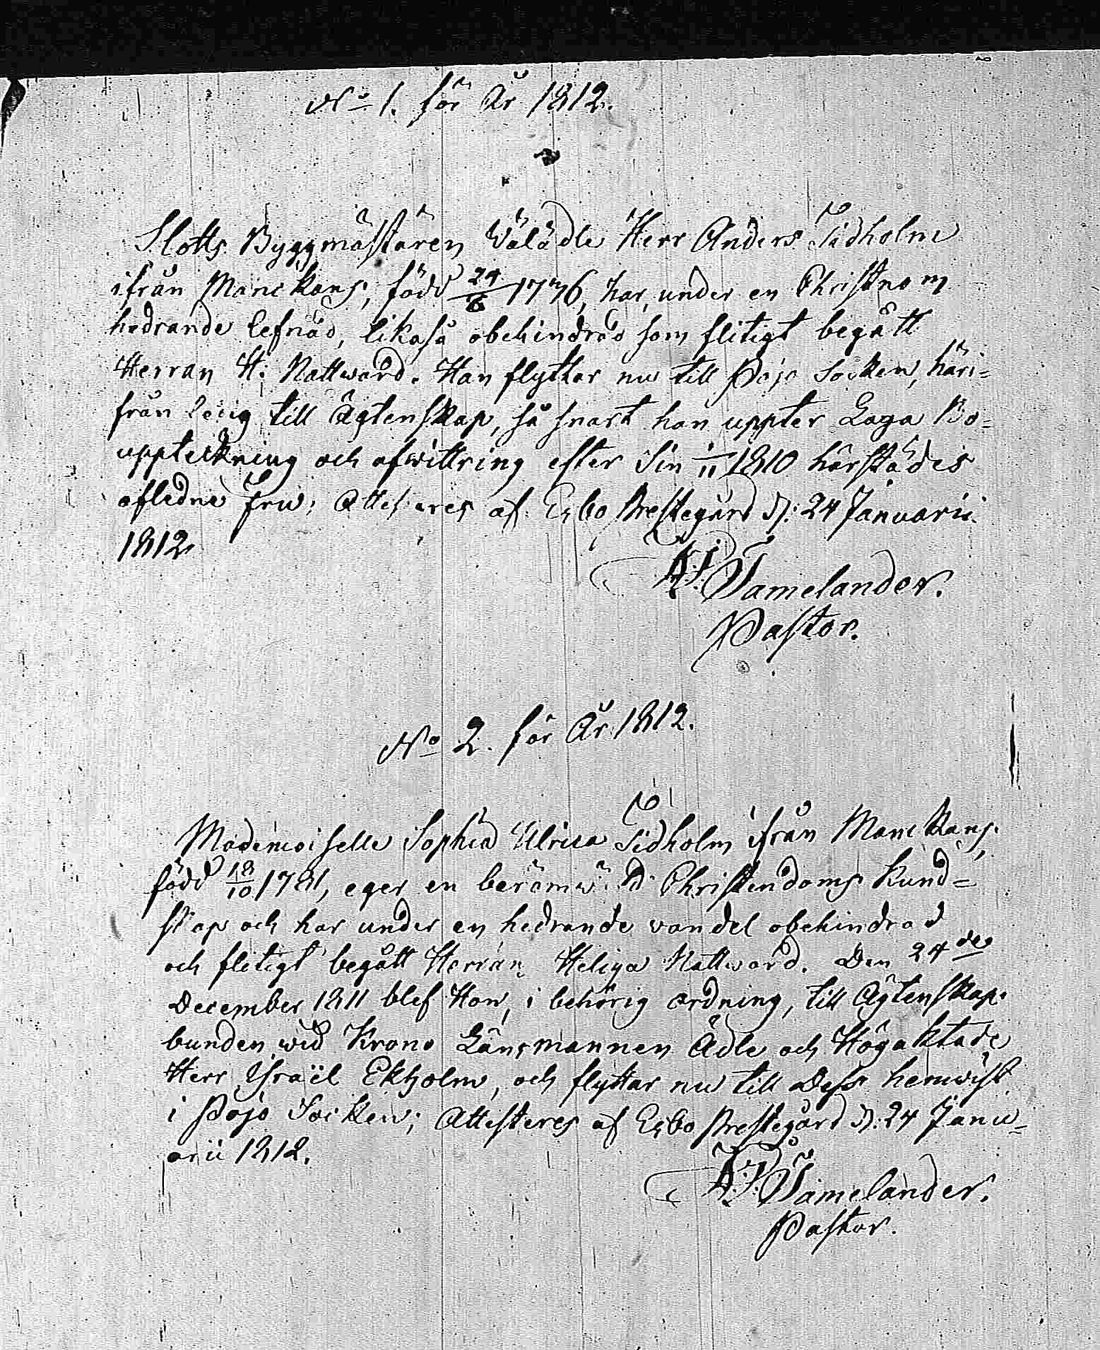 No 1. för År 1812.
Slotts Byggmästaren Wälädle Herr Anders Tidholm
ifrån Manskans, född 24/6 1736, har, under en Christnom
hedrande lefnad, likaså obehindrad som flitigt begått
Herran H: Nattward. Han flyttar nu till Pojo Socken, häri-
från ledig till Ägtenskap, så snart han uppter Laga Bo-
uppteckning och afwittring efter Sin 1/11 1810 härstädes
afledne Fru; Attesteres af Esbo Prestegård d: 24 Januarii
1812.
Tamelander.
Pastor.
No 2. för År 1812.
Mademoiselle Sophia Ulrica Tidholm ifrån Manskans,
född 18/10 1781, eger en berömwärd Christendoms Kund-
skap och har under en hedrande vandel obehindrad
och flitigt begått Herran Heliga Nattward. Den 24de
December 1811 blef Hon, i behörig ordning, till Ägtenskap
bunden wid Krono Länsmannen Ädle och Högaktade
Herr Israël Ekholm, och flyttar nu till Dess hemwist
i Pojo Socken; Attesteres af Esbo Prestegård d: 24 Janu-
arii 1812.
Tamelander.
Pastor.